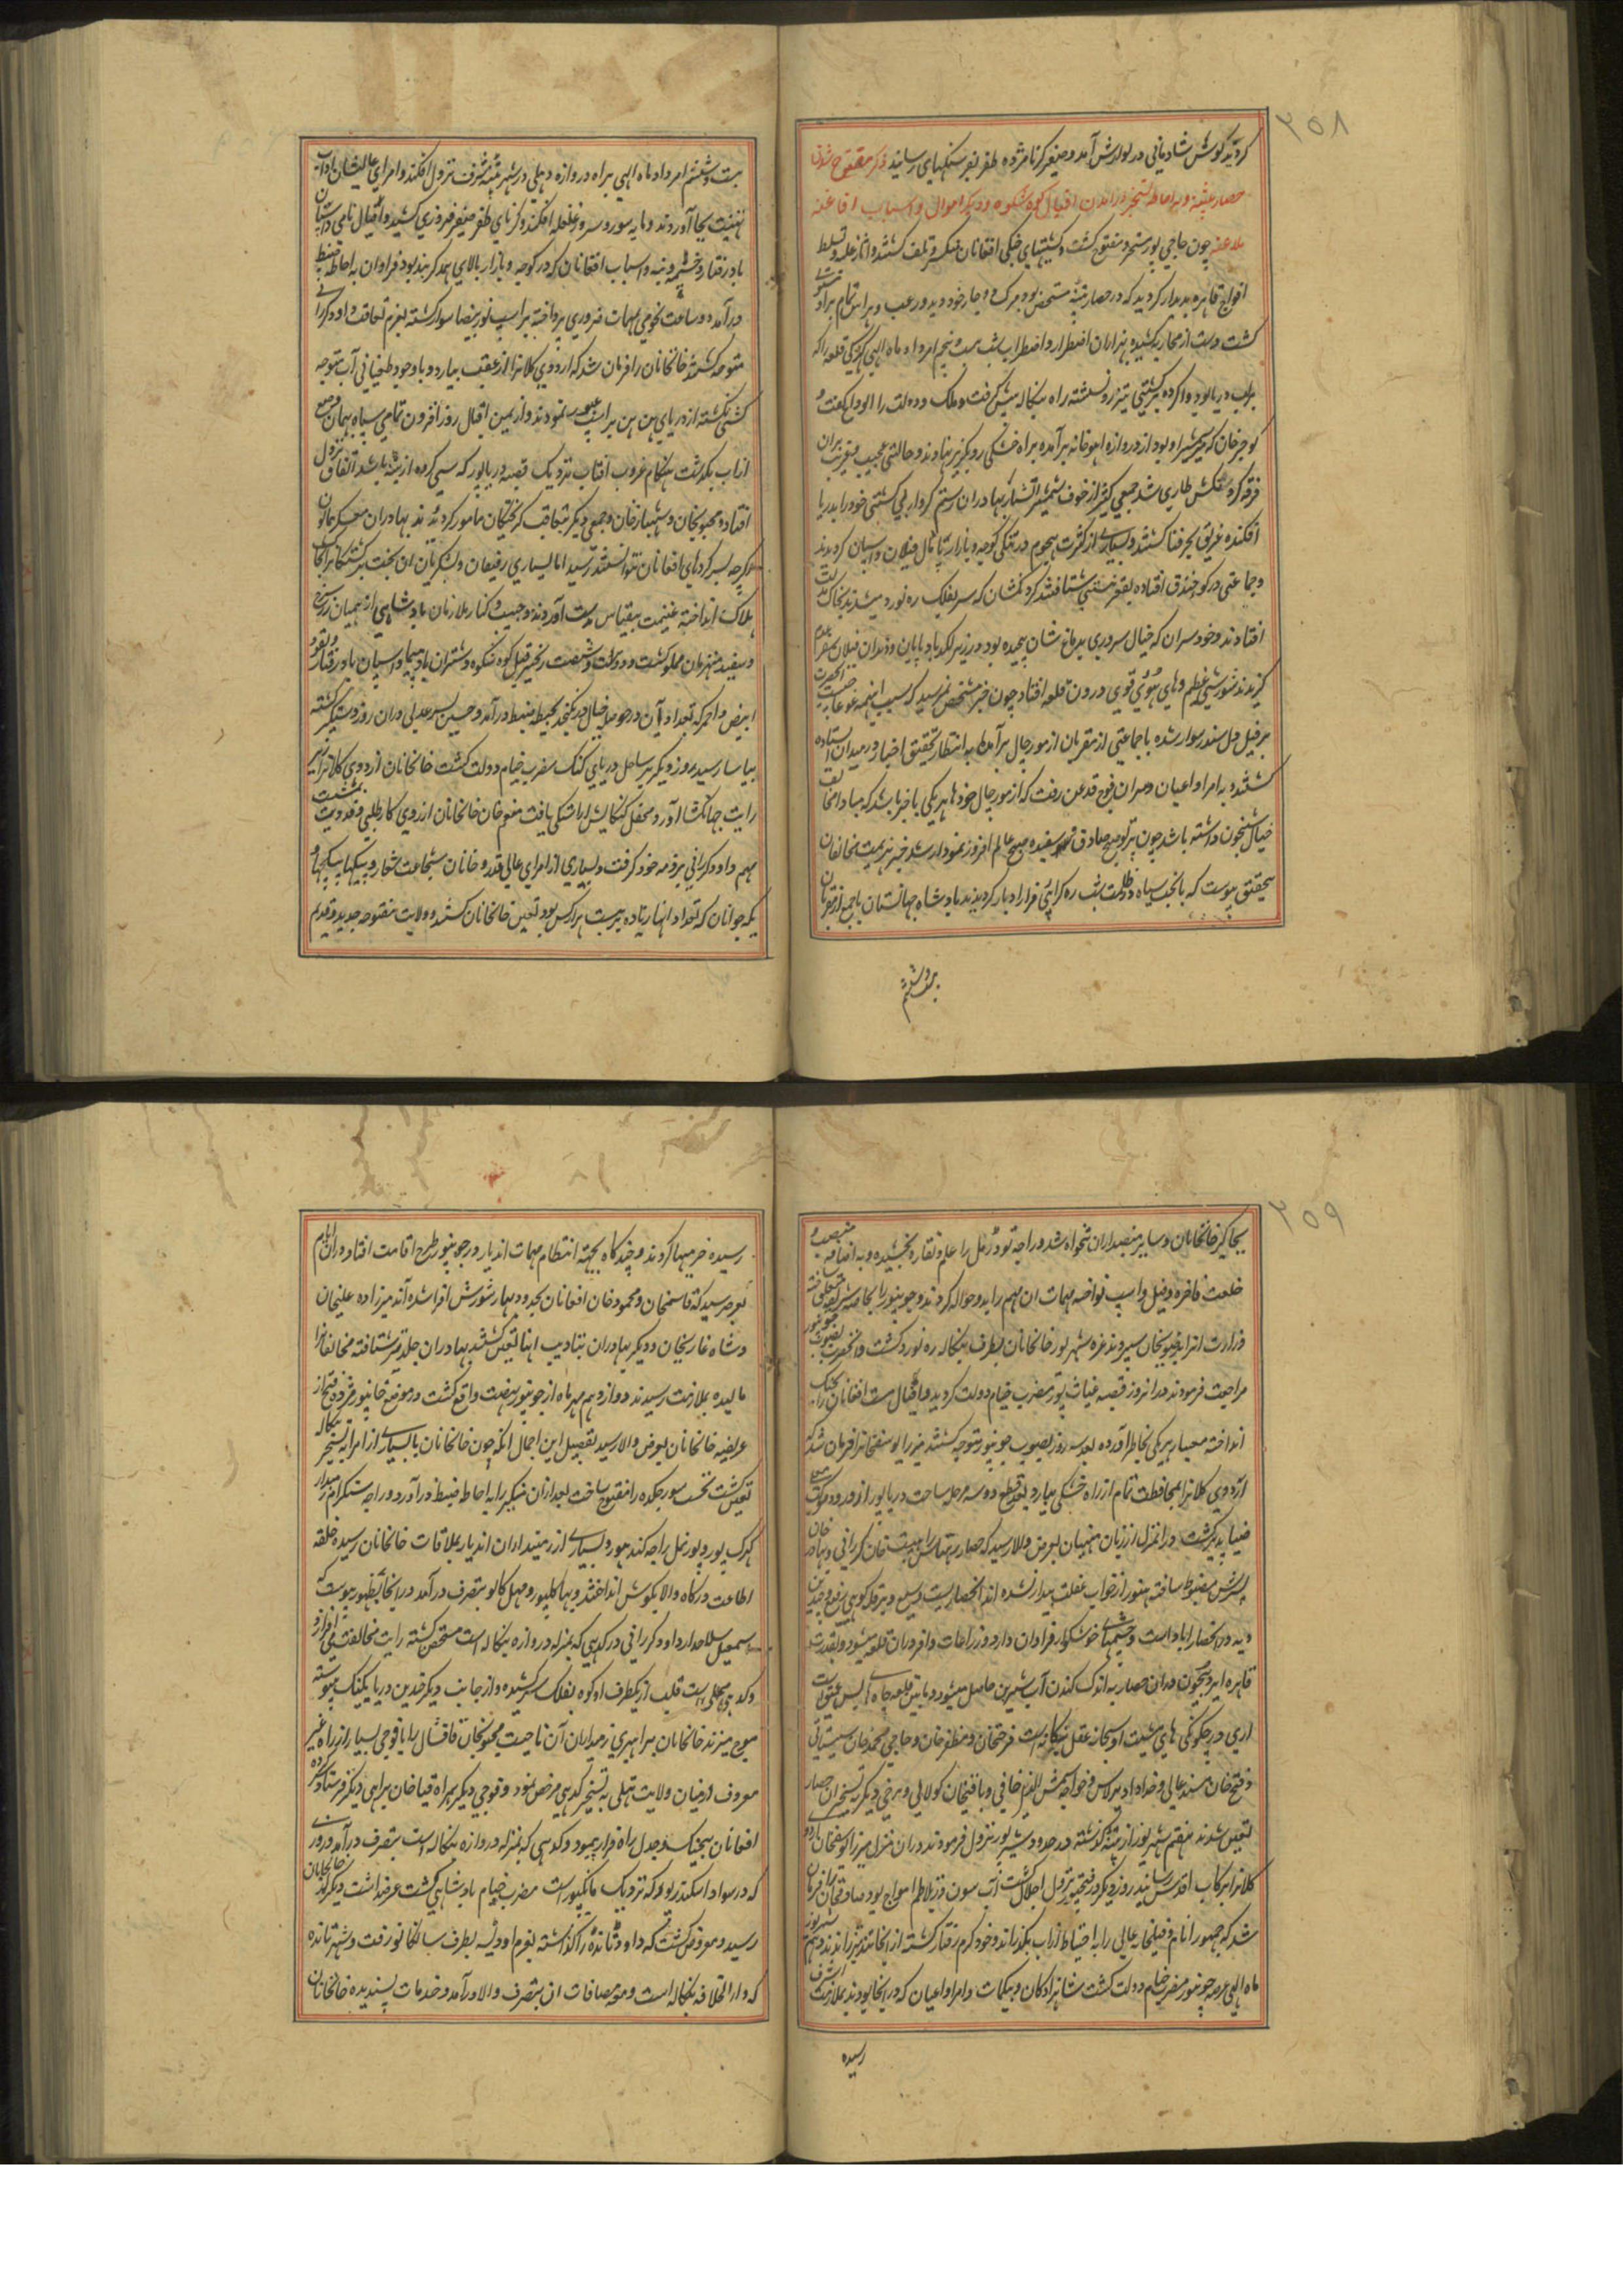 ۲۵۸
کردید کوش شادمانی در نوازش آمد و صفیر کرنا مژده ظفر بفرسنکهای رسانید ذکر مفتوح شدن
حصار پتنه و به احاطه تسخیر در آمدن افیال کوه شکوه و دیکر اموال و اسباب افاغنه
ملاعنه چون حاجی پور مسخر و مفتوح کشت و کشتیهای جنکی افغانان تلف کشتند و آثار غلبه و تسلط
افواج قاهره پدیدار کردید که در حصار پتنه متحصن بود مرک دوچار خود دید و رعب و هراس تمام براو
کشت و دست از محاربه کشیده بهزاران اضطرار و اضطراب شب بیست و پنجم امرداد ماه الهی کهرکی قلعه را که
براب دریا بود وا کرده بر کشتی تیزرو نشسته راه بنکاله پیش کرفت و ملک و دولت را الوداع کفت و
کوجر خان که بود از دروازه اهوخانه برآمده براه خشکی رو بکریز نهادند و حالتی عجیب
طاری شد جمعی کثیر از خوف شمشیر آتشبار بهادران رستم کردار بی کشتی خود را بدریا
افکنده غریق بحر فنا کشتند و بسیاری از کثرت هجوم در تنکی کوچه و بازار پایمال فیلان و اسپان کردیدند
و جماعتی در کو خندق افتاده بقعر نیستی شتافتند کردنکشان که سر بفلک ره نورد میشدند بخاک
افتادند و خودسران که خیال سروری بدماغ شان پیچیده بود در زیر لکد بادپایان و دندان فیلان
کزیدند شورشی عظیم و های هوی قوی درون قلعه افتاد چون خبر مشخص نمیرسید که سبب اینهمه غوغا
بر فیل سوار شده با جماعتی از مقربان از مورچال برآمده به انتظار تحقیق اخبار در میدان استاده
کشتند و به امرا و اعیان و سران فوج قدغن رفت که از مورچال خودها هر یکی باخبر باشد که مبادا مخالف
خیال شبخون داشته باشد چون پرتو صبح صادق سفیده صبح عالم افروز نمودار شد خبر هزیمت مخالفان
بتحقیق پیوست که بابخت سیاه در ظلمت شب ره کرای فرار ادبار کردیدند بادشاه جهانستان با جمع از مقربان
بیست و ششم
بیست و ششم امرداد ماه الهی براه دروازه دهلی در شهر پتنه شرف نزول افکند و امرای عالیشان آداب
تهنیت بجا آوردند و مایه سور و سرور غلغله افکند و کرنای ظفر صفیر فیروزی کشید و افیال نامی و اسپان
باد رفتار و خیمه و بنه و اسباب افغانان که در کوچه و بازار بالای همدکر بند بود فراوان به احاطه ضبط
درآمد و ساعت نجومی بمهمات ضروری پرداخته بر اسپ نور بیضا سوار کشته بعزم تعاقب داود کرانی
متوجه کشتند خانخانان را فرمان شد که اردوی کلانرا از عقب بیارد و باوجود طغیانی آب متوجه
کشتی نکشته از دریای پن پن بر اسپ عبور نمودند و از یمن اقبال روز افزون تمامی سپاه بهمان
از اب بکذشت هنکام غروب افتاب نزدیک قصبه دریاپور که سی کروه از پتنه باشد اتفاق نزول
افتاد و مجنونخان و شهباز خان و جمعی دیکر بتعاقب کریختکان مامور کردیدند بهادران
اکرچه بسر کردهای افغانان نتوانستند رسید اما بسیاری رفیقان و لشکریان آن بخت برکشتکان
هلاک انداخته غنیمت بیقیاس بدست آوردند و جیب و کنار ملازمان بادشاهی از همیان زر سرخ
و سفید مملو کشت و دویست و شصت زنجیر فیل کوه شکوه و شتران بادپیما و اسپان باد رفتار و نقود
ابیض و احمر که تعداد آن در حوصله خیال در نکنجد بحیطه ضبط درآمد و حسین پسر عدلی دران روز دستکیر کشته
بیاسا رسید روز دیکر بر ساحل دریای کنک مضرب خیام دولت کشت خانخانان اردوی کلانرا
رایت جهانکشا آورد و محفل کنکایش اراستکی یافت منعم خان خانخانان از روی کارطلبی و فدویت
مهم داود کرانی بر ذمه خود کرفت و بسیاری از امرای عالی قدر و خانان شجاعت شعار و بیکها و
یکه جوانان که تعداد انها زیاده بر بیست هزار کس بود تعین خانخانان کشتند و ولایت مفتوحه جدید و قدیم
۲۵۹
بجاکیر خانخانان و سایر منصبداران تنخواه شد و راجه تودرمل را علم و نقاره بخشیده و به اضافه منصب و
خلعت فاخره و فیل و اسپ نواخته مهمات ان مهم را بدو حواله کردند و جونپور را بخاصه شریفه
وزارت بخان سپردند غره شهریور خانخانان بطرف بنکاله ره نورد کشت و انحضرت بصوب جونپور
مراجعت فرمودند و درانروز قصبه غیاث پور مضرب خیام دولت کردید و افیال مست افغانان را بجنک
انداخته معیار هر یکی بخاطر آورده بعد سه روز بصوب جونپور متوجه کشتند میرزا یوسفخانرا فرمان شد که
اردوی کلانرا بمحافظت تمام از راه خشکی بیارد و بعد قطع دو سه مرحله ساحت دریاپور از فر ورود موکب
ضیا پذیر کشت درانمنزل از زبان منهیان بعرض والا رسید که حصار رهتاس را هیبت خان کرانی و بهادر خان
پسرش مضبوط ساخته هنوز از خواب غفلت بیدار نشده اند انحصاریست وسیع و بر قله کوهی رفیع و چندین
دیه دران حصار آباد است و چشمهای خوشکوار فراوان دارد و زراعات وافر دران قلعه میشود و بقدرت
قاهره ایزد بیچون دران حصار به اندک کندن آب شیرین حاصل میشود و پایین قلعه چاه
اری در چکونکی های مشیت او سبحانه عقل بیکانه است فرحتخان و مظفر خان و حاجی محمد خان سیستانی
و فتح خان مسند عالی و خداداد برلاس و خواجه شمس الدین خافی و باقیخان کولابی و برخی دیکر به تسخیر ان حصار
تعین شدند هفتم شهریور از پتنه کذشته در حدود شیرپور نزول فرمودند دران منزل میرزا یوسفخان اردو
کلانرا برکاب اقدس رسانید روز دیکر در فتحپور نزول اجلال کشت آب سون در تلاطم امواج بود صادقخان را فرمان
شد که جمهور انام و فیلخانه عالی را به احتیاط از آب بکذراند و خود کرم رفتار کشته از انجا تند و تیز راندند دهم شهریور
ماه الهی عرصه جونپور مضرب خیام دولت کشت شاهزادکان و بیکمات و امرا و اعیان که در انجا بودند بملازمت اشرف
رسیده
رسیده خرمیها کردند و چند کاه بجهته انتظام مهمات اندیار در جونپور طرح اقامت افتاد دران ایام
بعرض رسید که قاسمخان و محمود خان افغانان بحدود بهار شورش افزا شده اند میرزاده علیخان
و شاه غازیخان و دیکر بهادران بتادیب انها تعین کشتند بهادران جلدتر شتافته مخالفانرا
مالیده بملازمت رسیدند دوازدهم مهر ماه از جونپور نهضت واقع کشت در موضع خانپور مژده فتح از
عریضه خانخانان بعرض والا رسید تفصیل این اجمال انکه چون خانخانان با بسیاری از امرا به تسخیر بنکاله
تعین کشت نخست سورجکده را مفتوح ساخت بعد ازان منکیر را به احاطه ضبط درآورد و راجه سنکرام زمیندار
کهرک پور و پورنمل راجه کندهور و بسیاری از زمینداران اندیار بملاقات خانخانان رسیده حلقه
اطاعت درکاه والا بکوش انداختند و بهاکلپور و مهل کانو بتصرف درآمد در انجا بظهور پیوست که
اسمعیل سلاحدار داود کرانی در کدهی که بمنزله دروازه بنکاله است متحصن کشته رایت مخالفت می افرازد
و کدهی محلی است قلب از یکطرف او کوه بفلک سر کشیده و از جانب دیکر چندین دریا بکنک پیوسته
موج میزند خانخانان براهبری زمیداران آن ناحیت مجنونخان قاقشال را با فوجی بسیار از راه غیر
معروف از میان ولایت تیلی به تسخیر کدهی مرخص نمود و فوجی دیکر بهمراه قیا خان براهی دیکر فرستاد
افغانان بیجنک و جدل راه فرار پیمود و کدهی که بمنزله دروازه بنکاله است بتصرف درآمد و روزی
که در سواد اسکندرپور که نزدیک مانکپور است مضرب خیام بادشاهی کشت عرضداشت دیکر از خانخانان
رسید و معروض کشت که داود تانده را کذاشته بعزم اودیسه بطرف ساتکانو رفت و شهر تانده
که دار الخلافه بنکاله است و مع مضافات ان بتصرف والا درآمد و خدمات پسندیده خانخانان